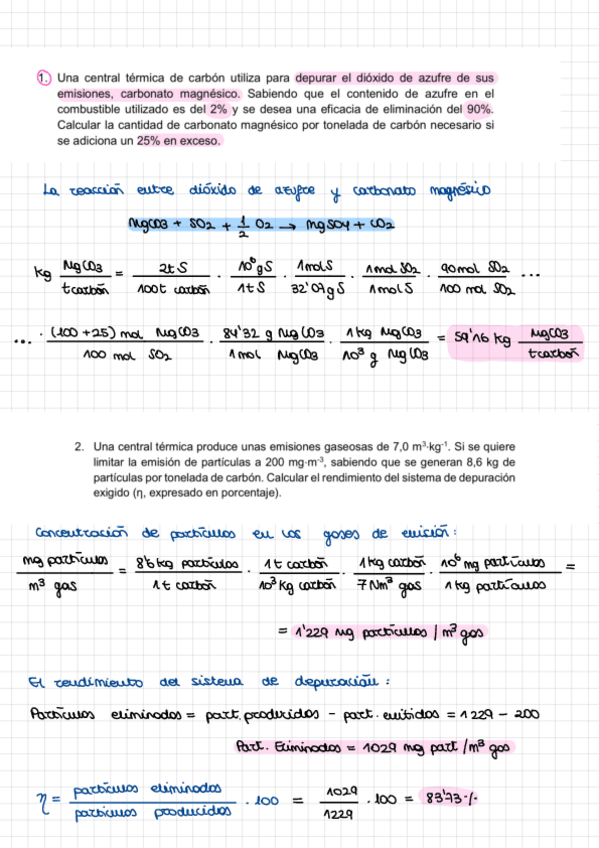 1. Una central térmica de carbón utiliza para depurar el dióxido de azufre de sus
emisiones, carbonato magnésico. Sabiendo que el contenido de azufre en el
combustible utilizado es del 2% y se desea una eficacia de eliminación del 90%.
Calcular la cantidad de carbonato magnésico por tonelada de carbón necesario si
se adiciona un 25% en exceso.
La reacción entre dióxido de azufre y carbonato magnésico
MgCO3 + SO2 + 1/2 O2 → MgSO4 + CO2
kg MgCO3/t carbón = 2t S/100t carbón · 10⁶ g S/1t S · 1mol S/32'07g S · 1mol SO2/1mol S · 90mol SO2/100 mol SO2 ...
... · (100+25) mol MgCO3/100 mol SO2 · 84'32 g MgCO3/1mol MgCO3 · 1kg MgCO3/10³ g MgCO3 = 59'16 kg MgCO3/t carbón
2. Una central térmica produce unas emisiones gaseosas de 7,0 m³·kg⁻¹. Si se quiere
limitar la emisión de partículas a 200 mg·m⁻³, sabiendo que se generan 8,6 kg de
partículas por tonelada de carbón. Calcular el rendimiento del sistema de depuración
exigido (η, expresado en porcentaje).
Concentración de partículas en los gases de emisión:
mg partículas/m³ gas = 8'6 kg partículas/1t carbón · 1t carbón/10³ kg carbón · 1kg carbón/7Nm³ gas · 10⁶ mg partículas/1 kg partículas =
= 1'229 mg partículas / m³ gas
El rendimiento del sistema de depuración:
Partículas eliminadas = part. producidas - part. emitidas = 1229 - 200
Part. Eliminadas = 1029 mg part / m³ gas
η = partículas eliminadas/partículas producidas · 100 = 1029/1229 · 100 = 83'73 %